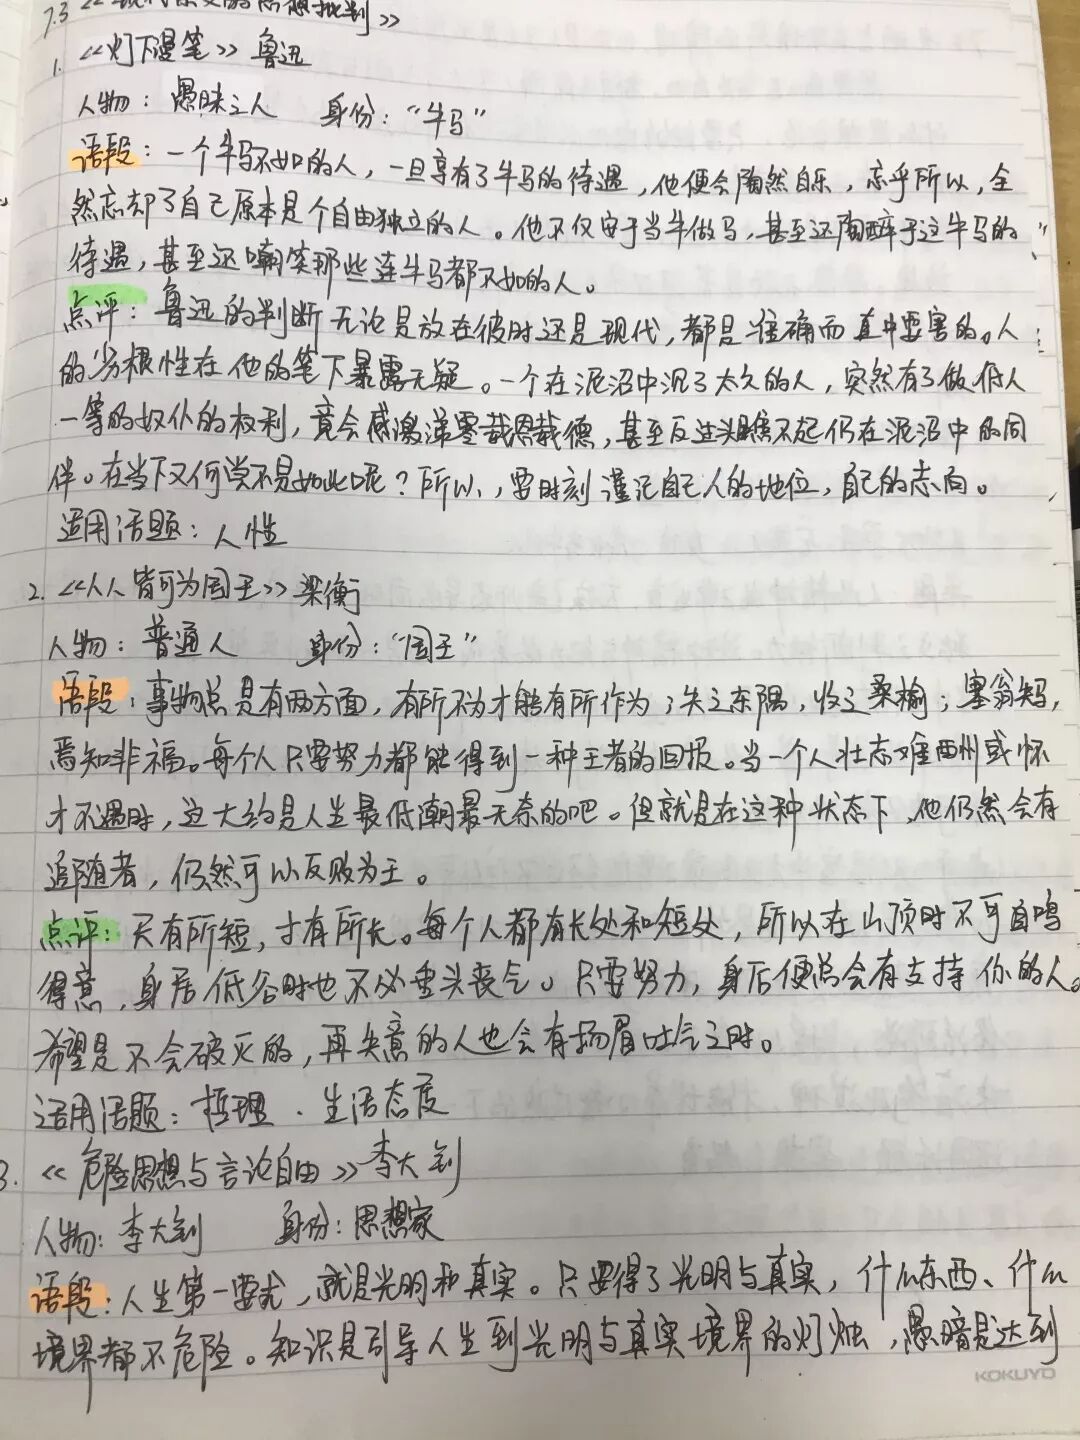 7.3 《现代杂文的思想批判》
1. 《灯下漫笔》 鲁迅
人物：愚昧之人 身份："牛马"
语段：一个牛马不如的人，一旦享有了牛马的待遇，他便会陶然自乐，忘乎所以，全
然忘却了自己原本是个自由独立的人。他不仅安于当牛做马，甚至还陶醉于这牛马的
待遇，甚至还嘲笑那些连牛马都不如的人。
点评：鲁迅的判断无论是放在彼时还是现代，都是准确而直中要害的。人
的劣根性在他的笔下暴露无疑。一个在泥沼中沉了太久的人，突然有了做低人
一等的奴仆的权利，竟会感激涕零载恩载德，甚至反过头瞧不起仍在泥沼中的同
伴。在当下又何尝不是如此呢？所以，要时刻谨记自己人的地位，自己的志向。
适用话题：人性
2. 《人人皆可为国王》梁衡
人物：普通人 身份："国王"
语段：事物总是有两方面，有所不为才能有所作为；失之东隅，收之桑榆；塞翁失马，
焉知非福。每个人只要努力都能得到一种王者的回报。当一个人壮志难酬或怀
才不遇时，这大约是人生最低潮最无奈的吧。但就是在这种状态下，他仍然会有
追随者，仍然可以反败为王。
点评：只有所短，才有所长。每个人都有长处和短处，所以在山顶时不可自鸣
得意，身居低谷时也不必垂头丧气。只要努力，身后便总会有支持你的人。
希望是不会破灭的，再失意的人也会有扬眉吐气之时。
适用话题：哲理、生活态度
3. 《危险思想与言论自由》李大钊
人物：李大钊 身份：思想家
语段：人生第一要求，就是光明和真实。只要得了光明与真实，什么东西、什么
境界都不危险。知识是引导人生到光明与真实境界的灯烛，愚暗是达到
KOKUYO